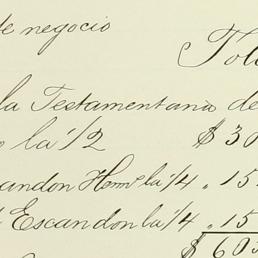 de negocio
Tot
la Testamentaria de
la 1/2 $ 30
andon Herms la 1/4 " 15
Escandon la 1/4 " 15
$ 603